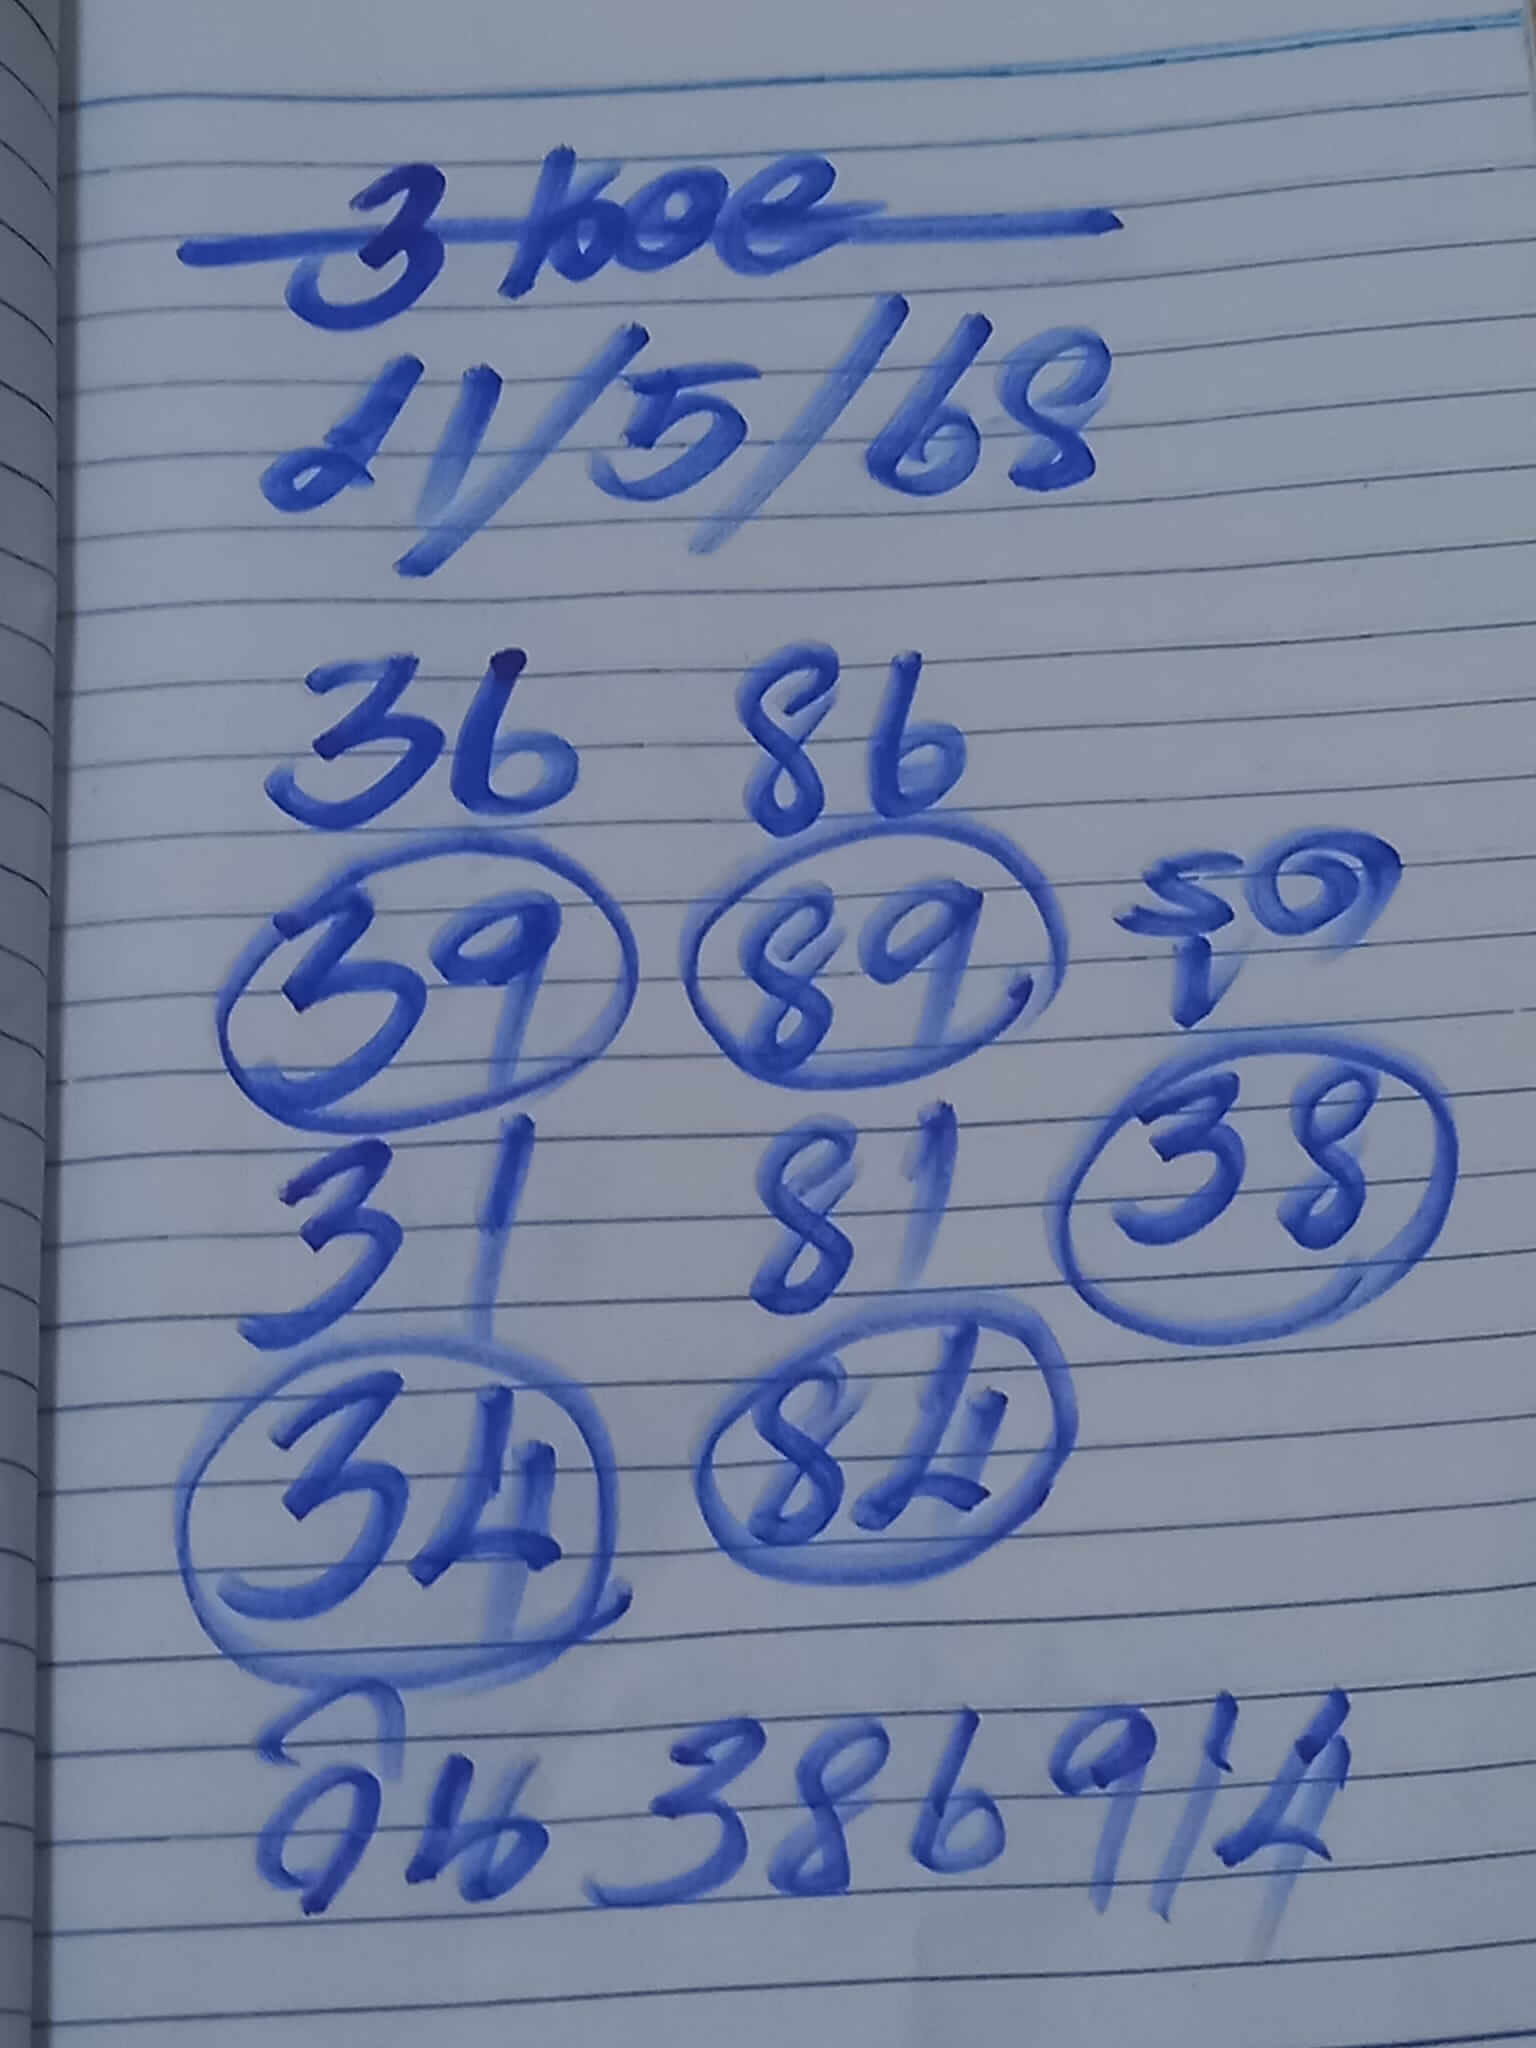 3 ผอย
21/5/68
36 86
39 89 รูด
31 81 38
34 84
วิน 386914